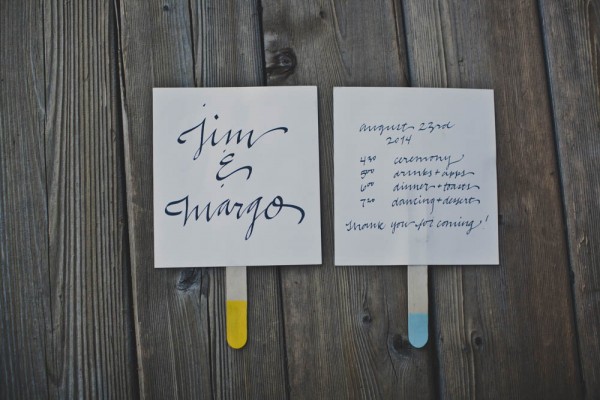 Jim
&
Margo
august 23rd
2014
4:30 ceremony
5:00 drinks + apps
6:00 dinner + toasts
7:30 dancing + dessert
Thank you for coming!